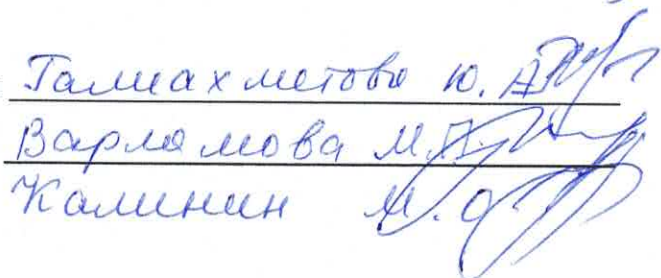 Галиахметова Ю. А.
Варламова М.
Калинин И. О.